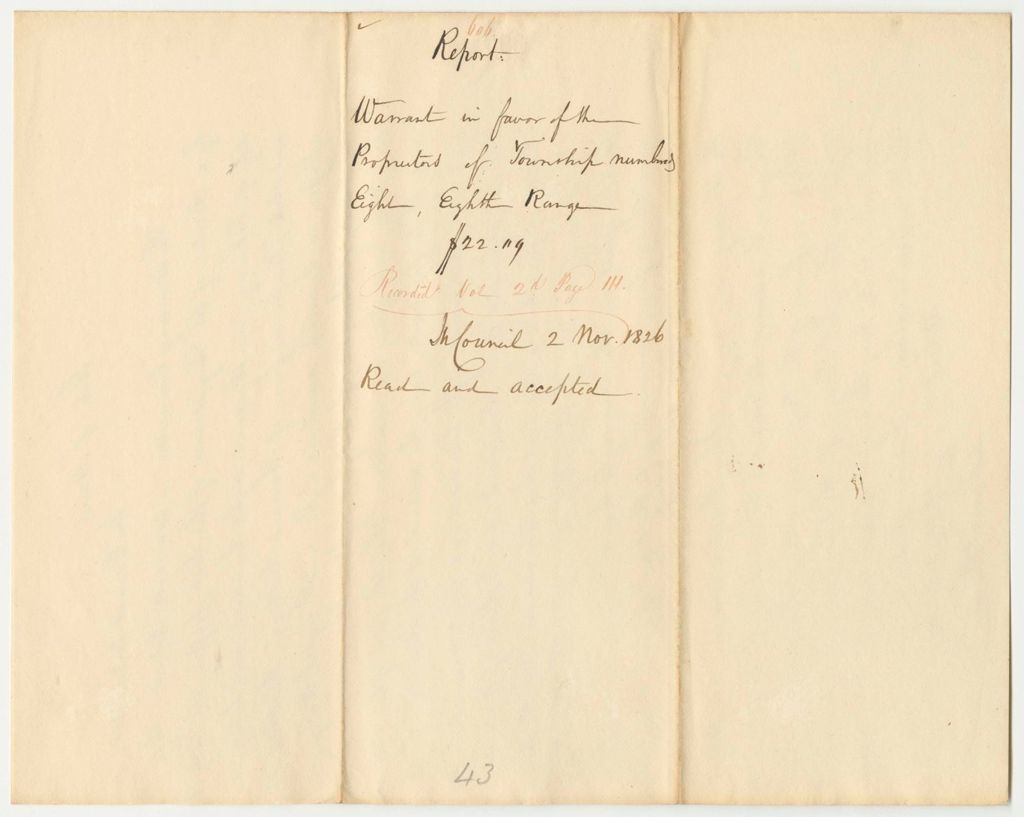 606.
Report.
Warrant in favor of the
Proprietors of Township numbered
Eight, Eighth Range
$22.09
Recorded Vol 2d Page 111.
In Council 2 Nov. 1826
Read and accepted.
43